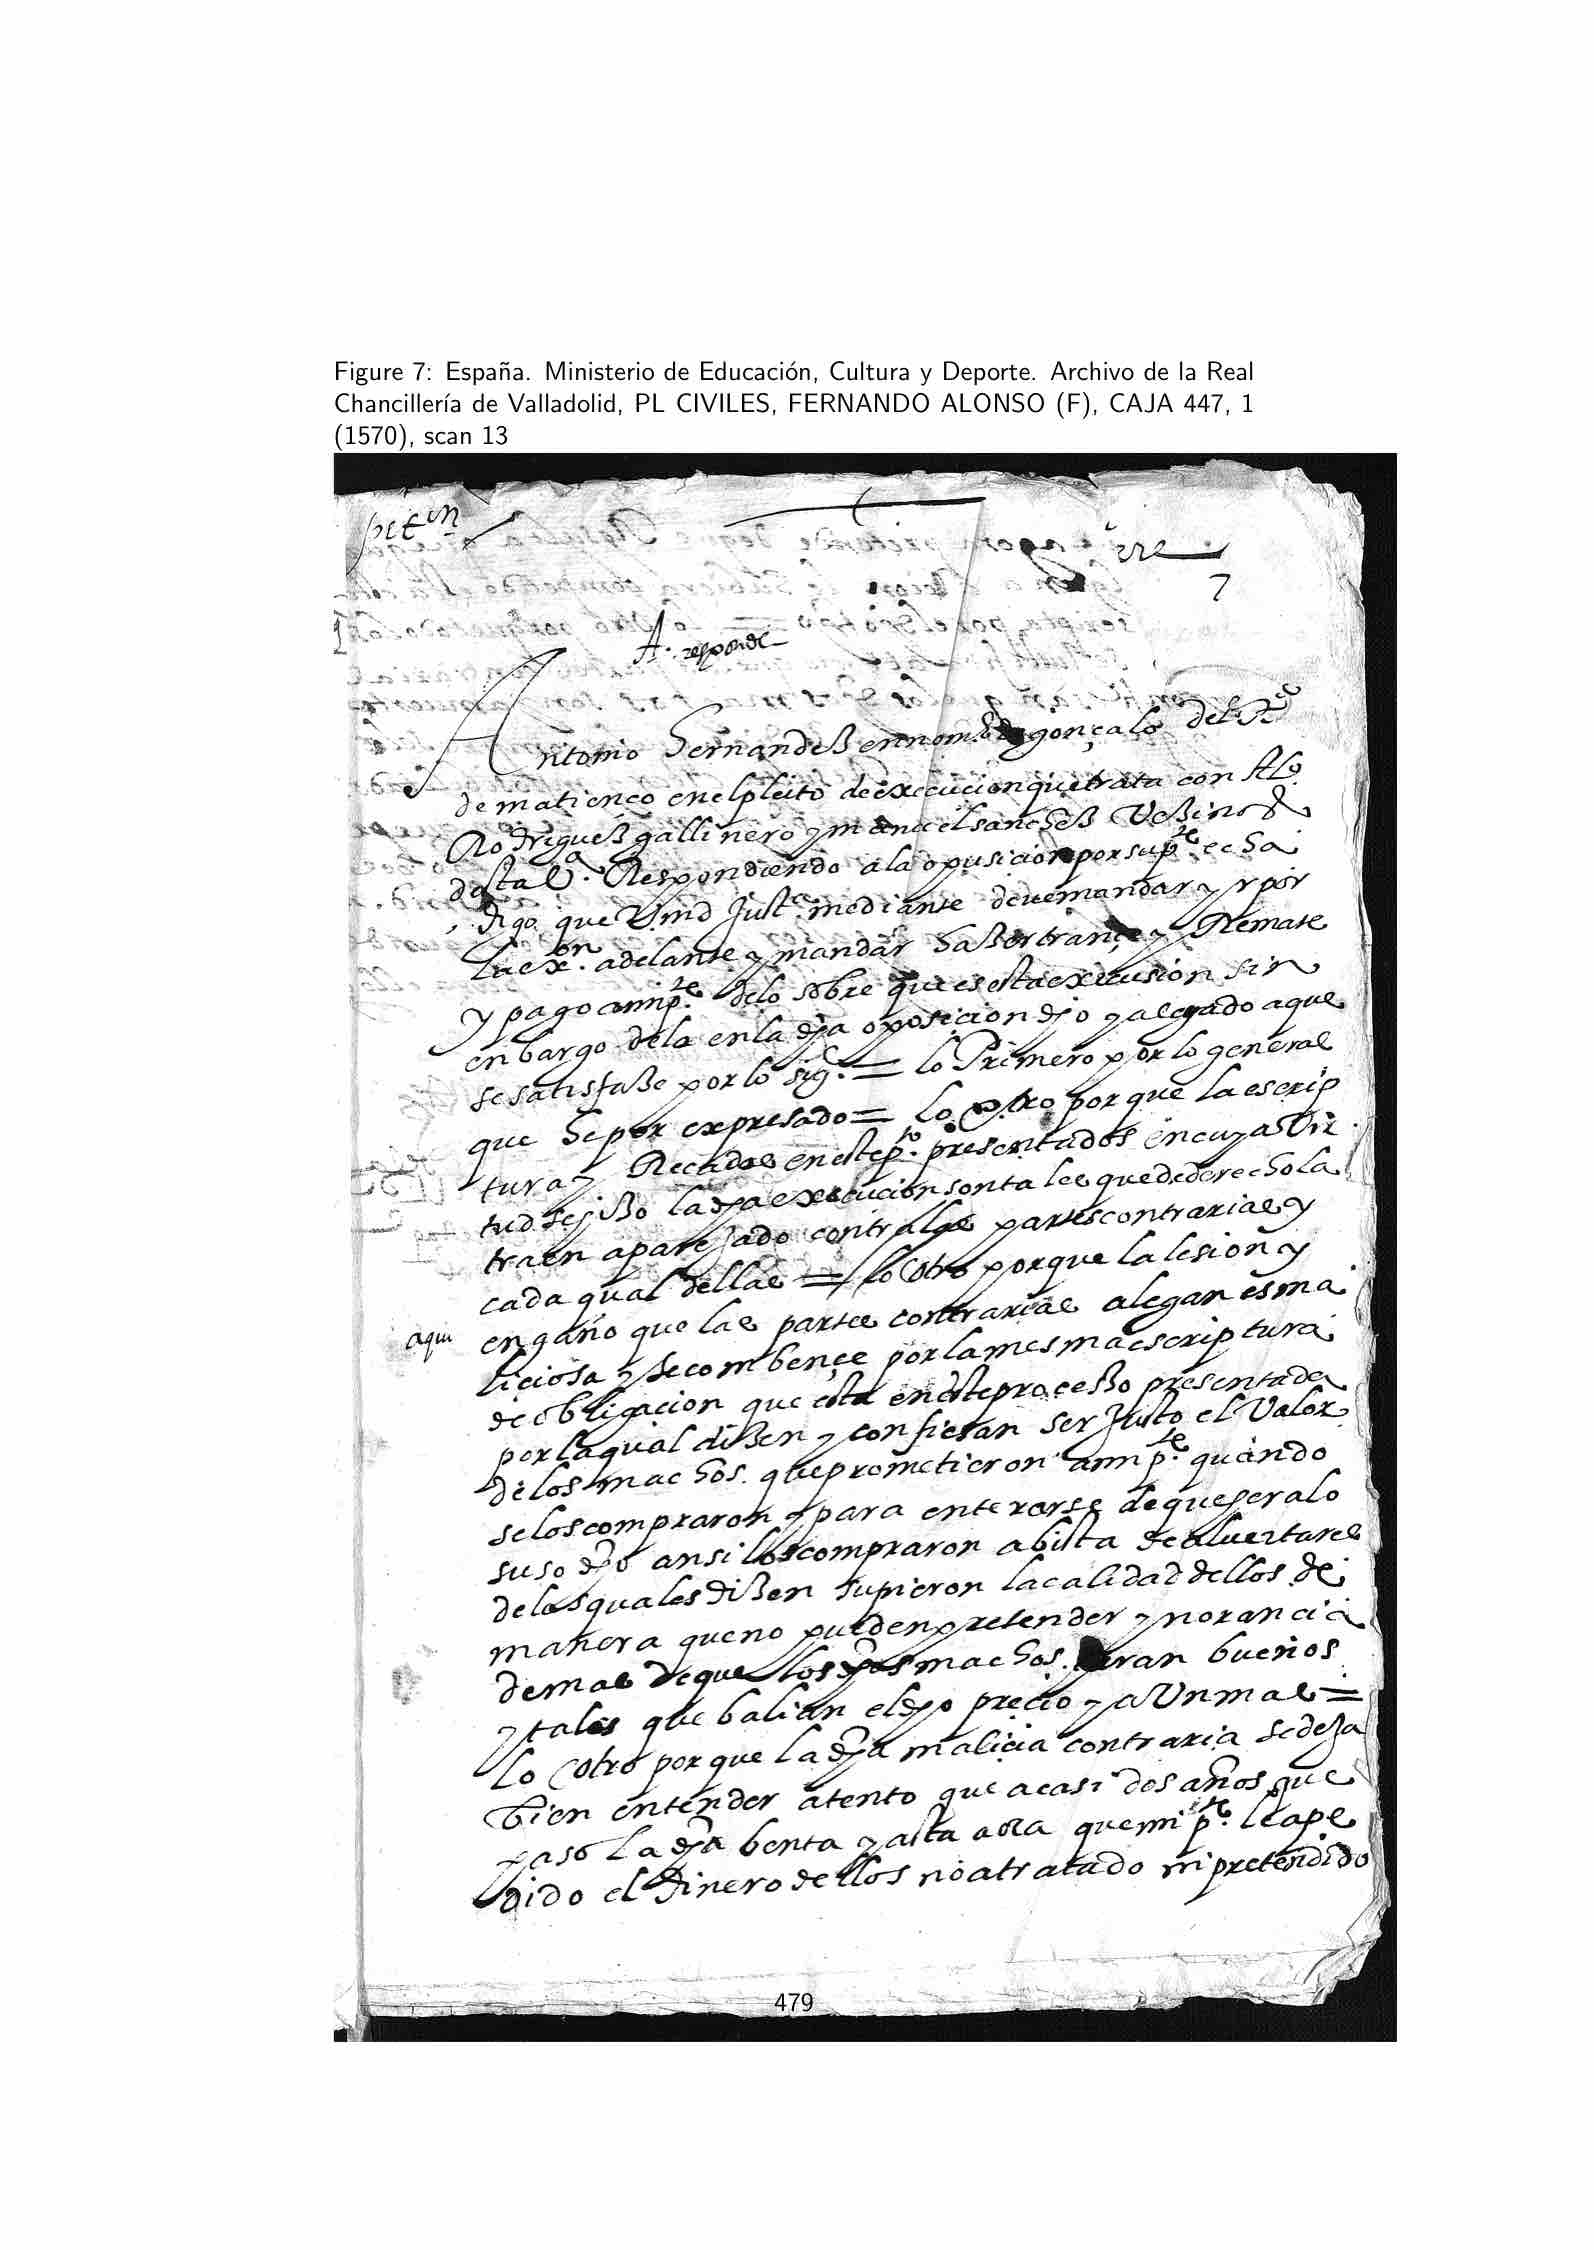 Figure 7: España. Ministerio de Educación, Cultura y Deporte. Archivo de la Real
Chancillería de Valladolid, PL CIVILES, FERNANDO ALONSO (F), CAJA 447, 1
(1570), scan 13
peton
7
A. responde
Antonio hernandez en nombre de gonçalo del Rio
de matienço en el pleito de execucion que trata con Alo
Rodriguez gallinero y manuel sanchez vezinos
dastal. Respondiendo a la oposicion por su pte echa
digo que Vmd justa mediante deve mandar yr por
la exon. adelante y mandar hazer trançe y Remate
y pago a mi pte. de lo sobre que es esta execusion sin
enbargo de la en la dha oposicion dho y alegado a que
se satisfaze por lo sige. = lo Primero por lo general
que he por expresado = lo otro por que la escrip
tura y Recados en este po. presentados en cuya vir
tud se hizo la dha execucion son tales que de derecho la
traen aparejado contra las partes contrarias y
cada qual dellas = lo otro porque la lesion y
aqui
engaño que las partes contrarias alegan es ma
liciosa y se combençe por la mesma escriptura
de obligacion que esta en este proçesso presentada
por la qual dizen y confiesan ser justo el valor
de los machos que prometieron a mi pte. quando
se los compraron y para enterarse de que hera lo
suso dho ansi los compraron a bista de alveitares
de los quales dizen supieron la calidad dellos de
manera que no pueden pretender ynorancia
demas de que los dhos machos heran buenos
y tales que balian el dho precio y a vn mas =
lo otro por que la dha malicia contraria se deja
bien entender atento que a casi dos años que
paso la dha benta y asta aora que mi pte. les a pe
dido el dinero dellos no a tratado ni pretendido
479